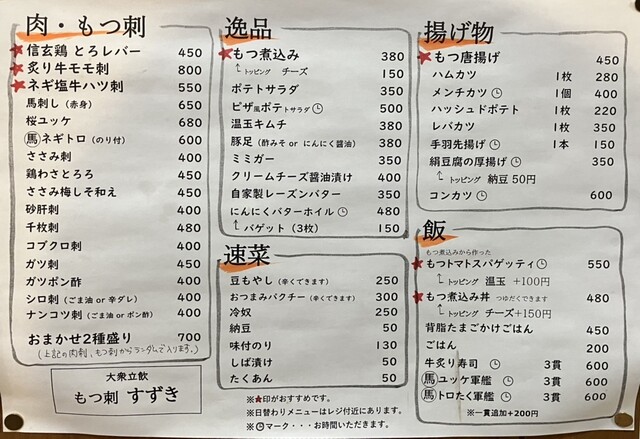 肉・もつ刺
★信玄鶏 とろレバー 450
★炙り牛モモ刺 800
★ネギ塩牛ハツ刺 550
馬刺し（赤身） 650
桜ユッケ 680
馬ネギトロ（のり付） 600
ささみ刺 400
鶏わさとろろ 450
ささみ梅しそ和え 450
砂肝刺 400
千枚刺 480
コブクロ刺 400
ガツ刺 450
ガツポン酢 400
シロ刺（ごま油 or 辛ダレ） 400
ナンコツ刺（ごま油 or ポン酢） 400
おまかせ2種盛り 700
（上記の肉刺、もつ刺からランダムで入ります。）
大衆立飲
もつ刺 すずき
逸品
★もつ煮込み 380
トッピング チーズ 150
ポテトサラダ 350
ピザ風ポテトサラダ 500
温玉キムチ 380
豚足（酢みそ or にんにく醤油） 380
ミミガー 350
クリームチーズ醤油漬け 400
自家製レーズンバター 350
にんにくバターホイル 480
バゲット（3枚） 150
速菜
豆もやし（辛くできます） 250
おつまみパクチー（辛くできます） 300
冷奴 250
納豆 50
味付のり 130
しば漬け 50
たくあん 50
※★印がおすすめです。
※日替わりメニューはレジ付近にあります。
※マーク・・・お時間いただきます。
揚げ物
★もつ唐揚げ 450
ハムカツ 1枚 280
メンチカツ 1個 400
ハッシュドポテト 1枚 220
レバカツ 1枚 350
手羽先揚げ 1本 150
絹豆腐の厚揚げ 350
トッピング 納豆 50円
コンカツ 600
飯
もつ煮込みから作った
★もつトマトスパゲッティ 550
トッピング 温玉 +100円
★もつ煮込み丼 つゆだくできます 480
トッピング チーズ+150円
背脂たまごかけごはん 450
ごはん 200
牛炙り寿司 3貫 600
馬ユッケ軍艦 3貫 600
馬トロたく軍艦 3貫 600
※一貫追加+200円